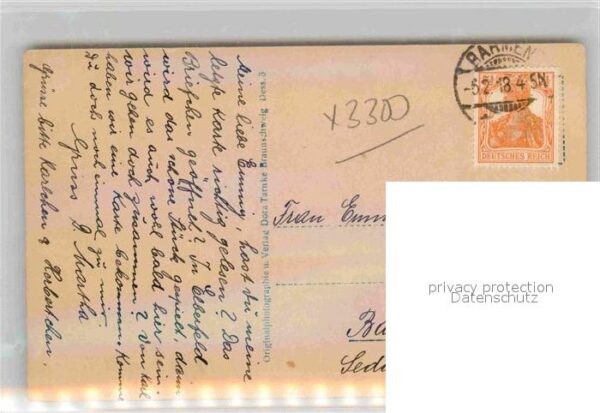 Meine liebe Emmy, hast du meine
letzte Karte richtig gelesen? Das
Briefchen geöffnet? In Elberfeld
wird das schöne Stück gespielt, dann
wird es auch wohl bald hier sein.
wir gehen doch zusammen? Von Karl
haben wir eine Karte bekommen. Komme
Du doch noch einmal zu mir.
Gruss D. Martha
Grüsse bitte Karlchen & Herbertchen.
Originalphotographie u. Verlag Dora Tarnke Braunschweig. Dess. 3
x3300
BARMEN
-5.2.18.4-5N
DEUTSCHES REICH
Frau Emm
Ba
Seda
privacy protection
Datenschutz